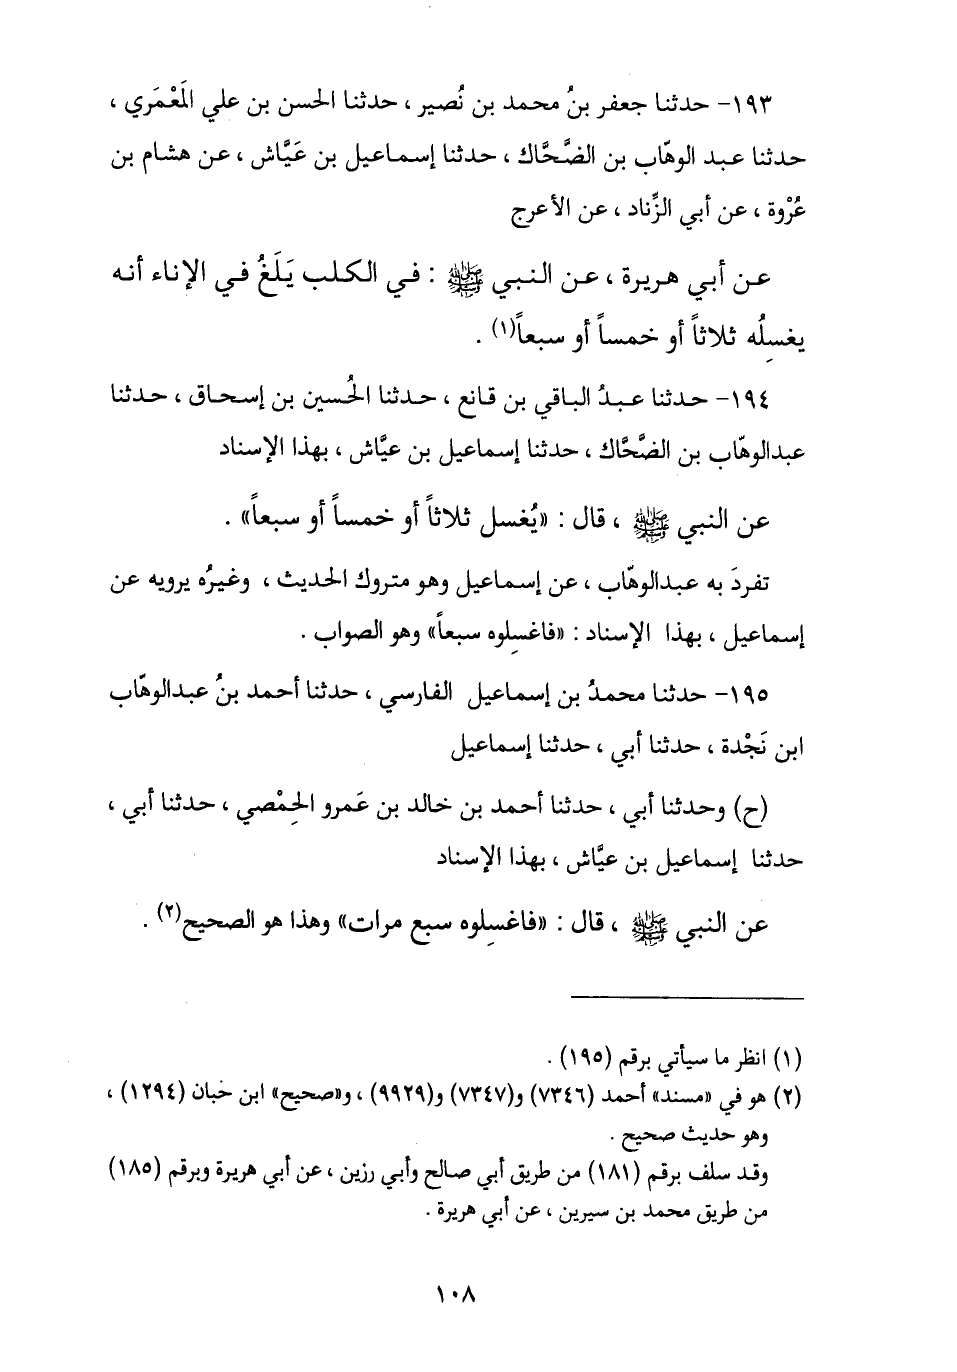 ١٩٣- حدثنا جعفر بنُ محمد بن نُصير ، حدثنا الحسن بن علي المَعْمَري ،
حدثنا عبد الوهّاب بن الضَّحَّاك ، حدثنا إسماعيل بن عَيَّاش ، عن هشام بن
عُرْوة ، عن أبي الزِّناد ، عن الأعرج
عن أبي هريرة ، عن النبي ﷺ : في الكلب يَلَغُ في الإناء أنه
يغسِلُه ثلاثاً أو خمساً أو سبعاً(١) .
١٩٤- حدثنا عبدُ الباقي بن قانع ، حدثنا الحُسين بن إسحاق ، حدثنا
عبدالوهّاب بن الضَّحَّاك ، حدثنا إسماعيل بن عيَّاش ، بهذا الإسناد
عن النبي ﷺ ، قال : «يُغسل ثلاثاً أو خمساً أو سبعاً» .
تفردَ به عبدالوهّاب ، عن إسماعيل وهو متروك الحديث ، وغيرُه يرويه عن
إسماعيل ، بهذا الإسناد : «فاغسِلوه سبعاً» وهو الصواب .
١٩٥- حدثنا محمدُ بن إسماعيل الفارسي ، حدثنا أحمد بنُ عبدالوهّاب
ابن نَجْدة ، حدثنا أبي ، حدثنا إسماعيل
(ح) وحدثنا أبي ، حدثنا أحمد بن خالد بن عَمرو الحِمْصي ، حدثنا أبي ،
حدثنا إسماعيل بن عيَّاش ، بهذا الإسناد
عن النبي ﷺ ، قال : «فاغسِلوه سبع مرات» وهذا هو الصحيح(٢) .
(١) انظر ما سيأتي برقم (١٩٥) .
(٢) هو في «مسند» أحمد (٧٣٤٦) و(٧٣٤٧) و(٩٩٢٩) ، و«صحيح» ابن حبان (١٢٩٤) ،
وهو حديث صحيح .
وقد سلف برقم (١٨١) من طريق أبي صالح وأبي رزين ، عن أبي هريرة وبرقم (١٨٥)
من طريق محمد بن سيرين ، عن أبي هريرة .
١٠٨